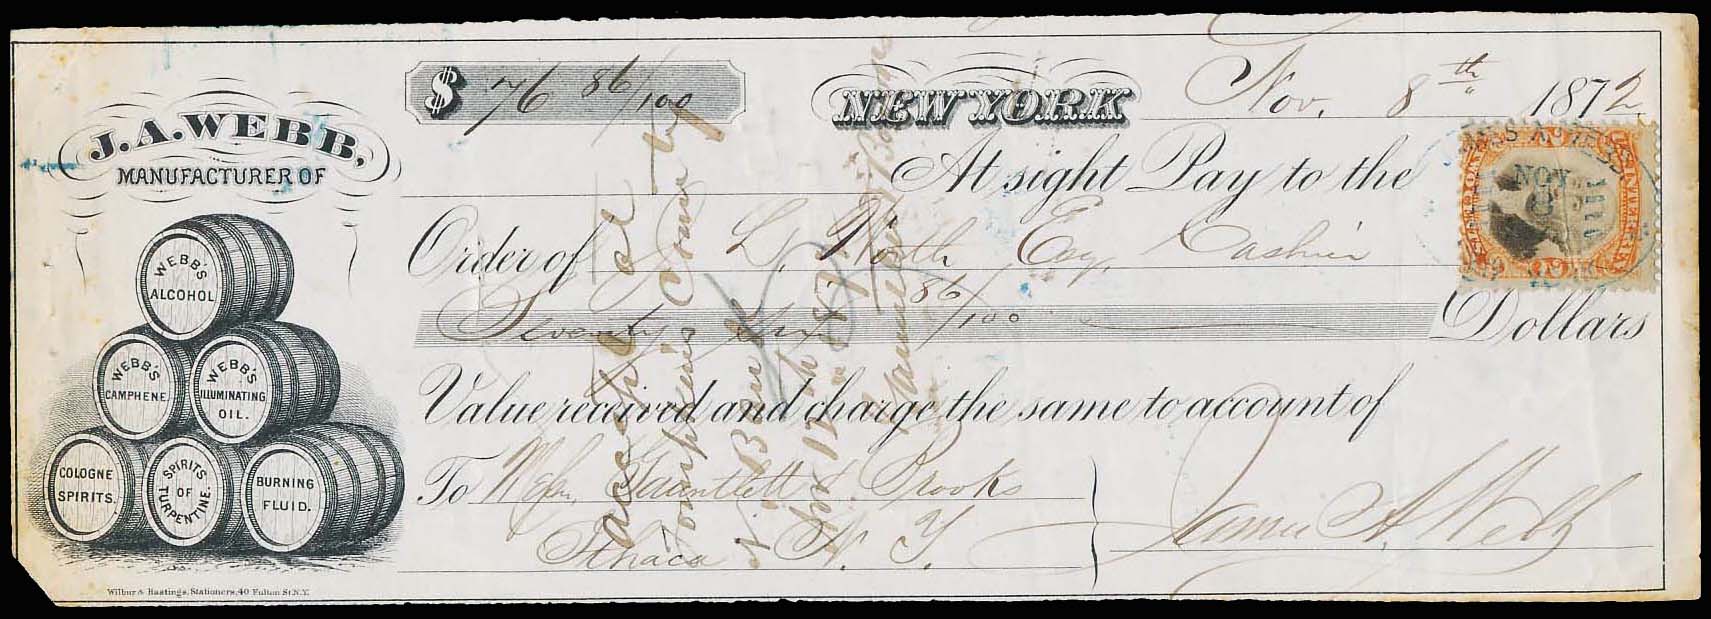 J. A. WEBB,
MANUFACTURER OF
WEBB'S
ALCOHOL
WEBB'S
CAMPHENE
WEBB'S
ILLUMINATING
OIL.
COLOGNE
SPIRITS.
SPIRITS
OF
TURPENTINE.
BURNING
FLUID.
Wilbur & Hastings, Stationers, 40 Fulton St N.Y.
$ 76 86/100
NEW YORK Nov. 8th 1872
At sight Pay to the
Order of L. Worth Esq. Cashier
Seventy Six 86/100 Dollars
Value received and charge the same to account of
To Gauntlett & Brooks
Ithaca N. Y.
James A. Webb
NOV
8